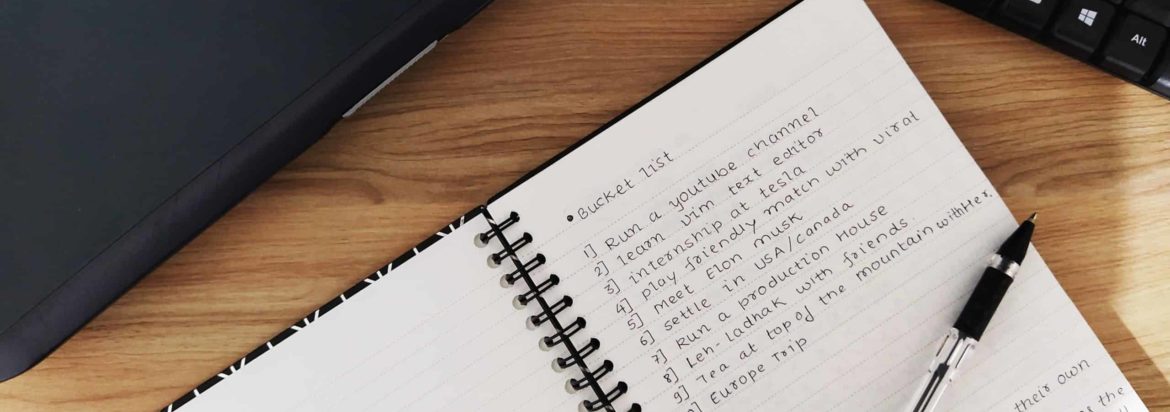 • Bucket list
1] Run a youtube channel
2] learn vim text editor
3] internship at tesla
4] play friendly match with virat
5] meet Elon musk
6] settle in USA/canada
7] Run a production House
8] Leh-Ladhak with friends
9] Tea at top of the mountain with Her.
Europe Trip
their own
the
Alt